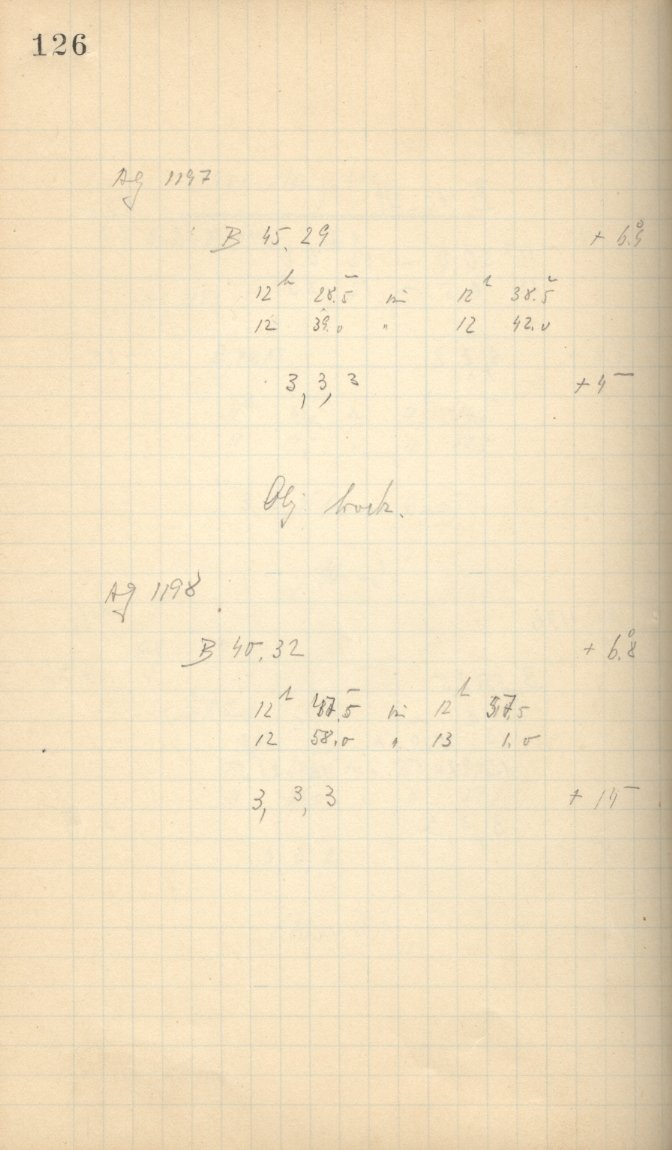 126
Ag 1197
B 45.29 + 6.°4
12ʰ 28.5 bis 12ʰ 38.5
12 39.0 " 12 42.0
3, 3, 3 + 4
Obj trock.
Ag 1198
B 40.32 + 6.°8
12ʰ 47.5 bis 12ʰ 57.5
12 58.0 " 13 1.0
3, 3, 3